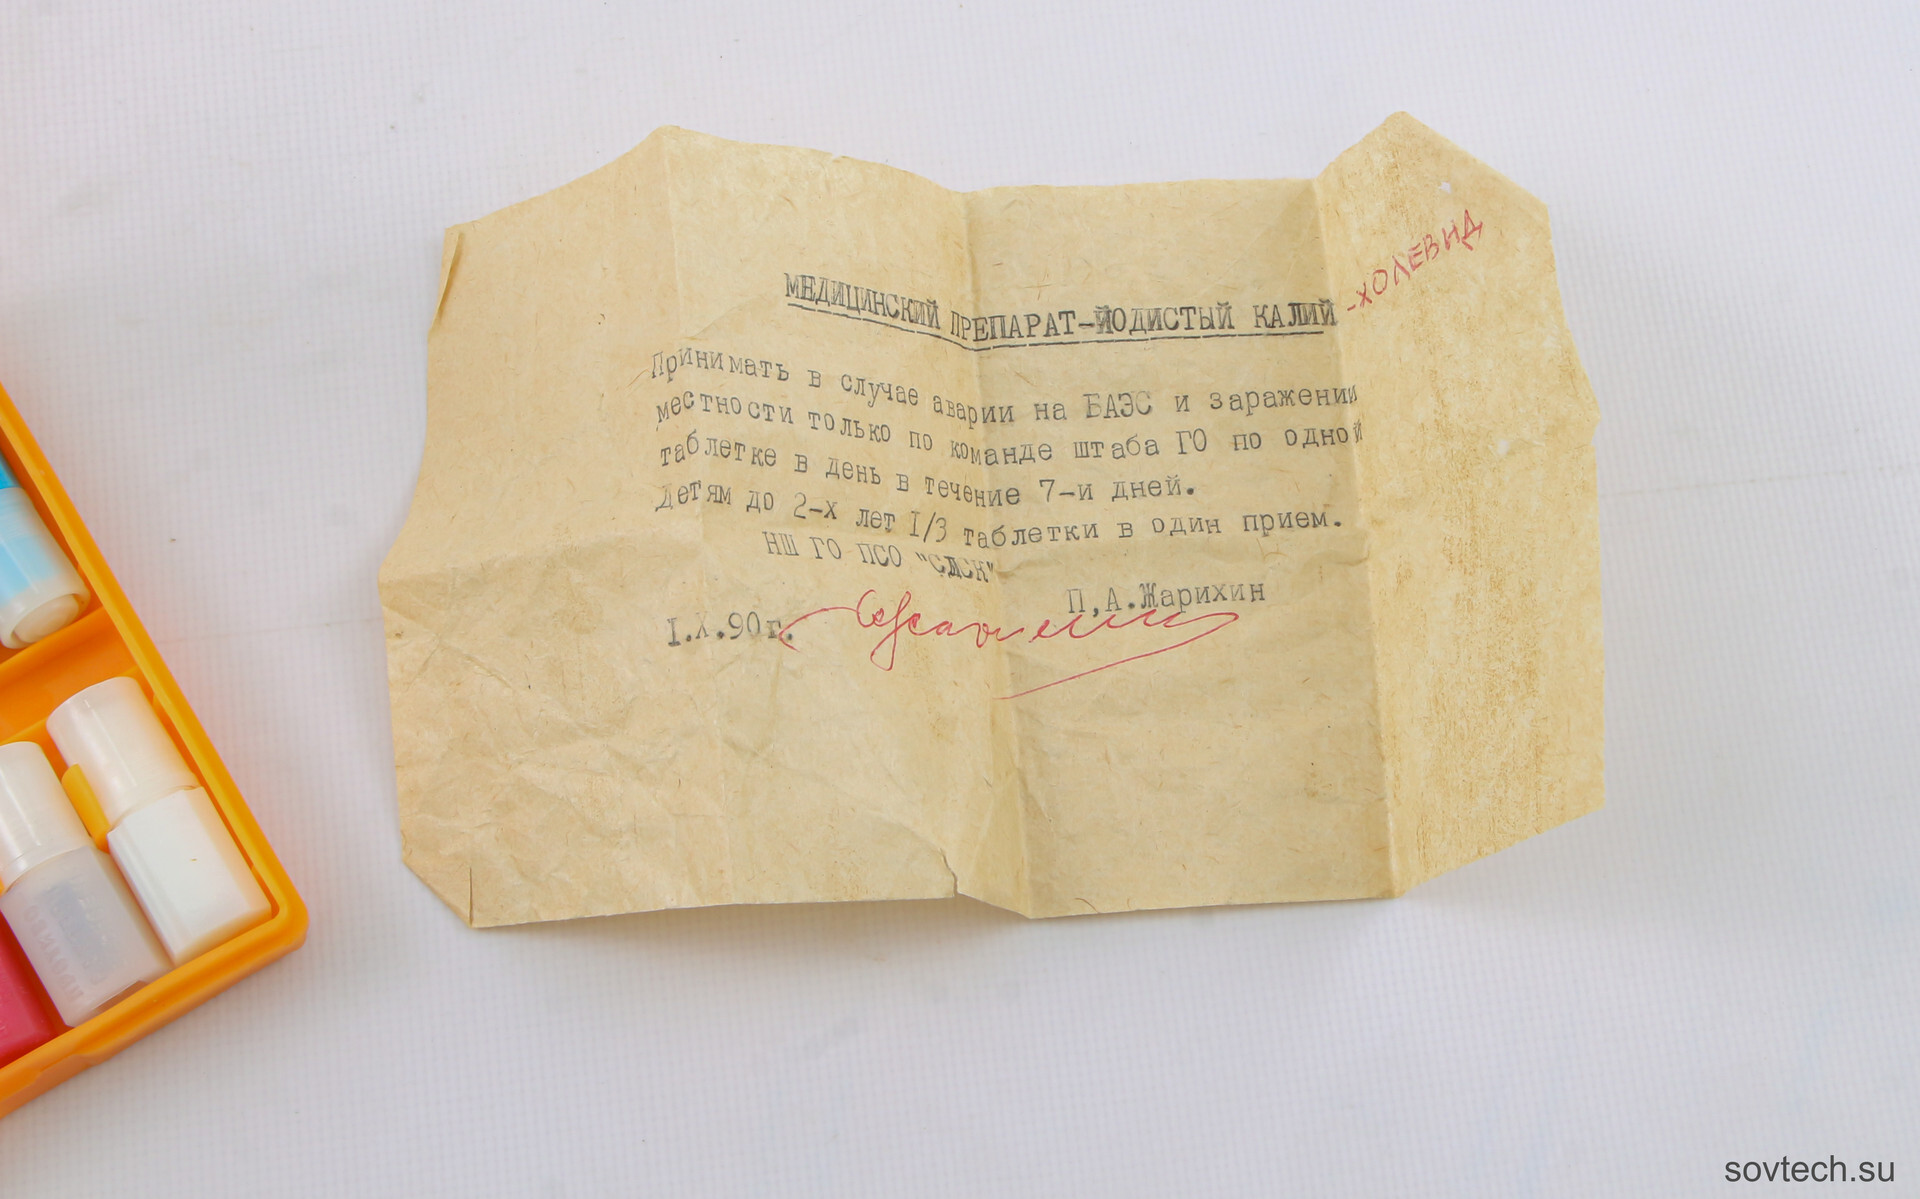 МЕДИЦИНСКИЙ ПРЕПАРАТ-ЙОДИСТЫЙ КАЛИЙ -ХОЛЕВИД
Принимать в случае аварии на БАЭС и заражении
местности только по команде штаба ГО по одной
таблетке в день в течение 7-и дней.
Детям до 2-х лет I/3 таблетки в один прием.
НШ ГО ПСО
П,А.Жарихин
I.X.90г.
sovtech.su